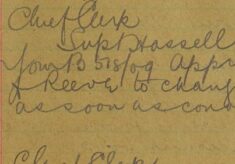 Chief Clerk
Supt Hassell
Your B 518/09 Appr
A Reeve to chang
as soon as conv
Chief Clerk